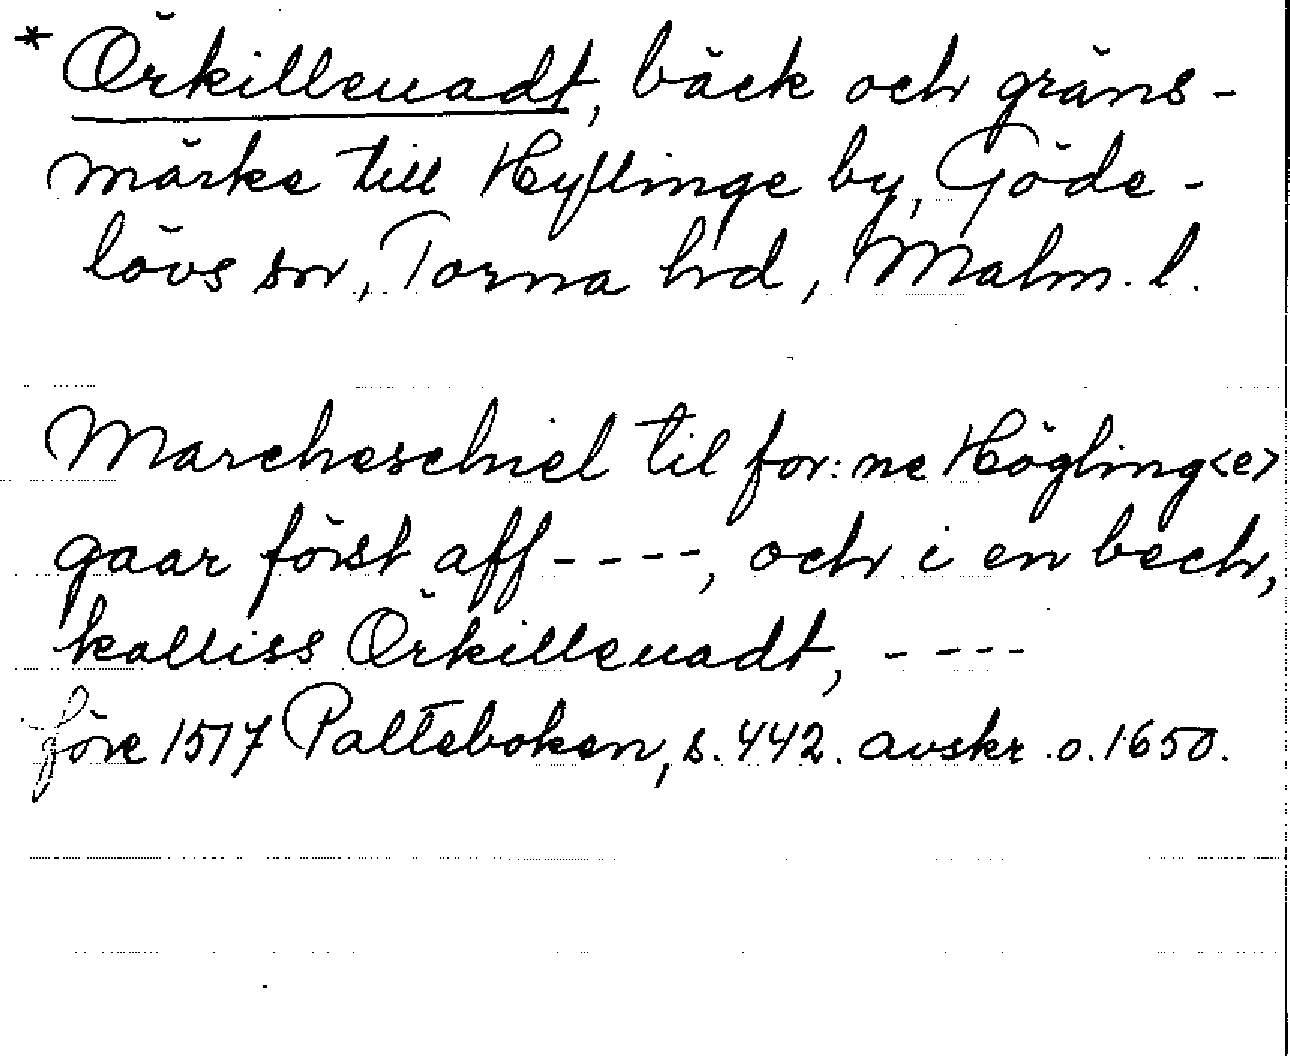 * Örkilleuadt, bäck och gräns-
märke till Hyllinge by, Göde-
lövs sn, Torna hd, Malm. l.
Marcheschiel til for:ne Högling<e>
gaar först aff - - - -, och i en bech,
kalliss Örkilleuadt, - - - -
före 1517 Palteboken, s. 442. avskr. o. 1650.